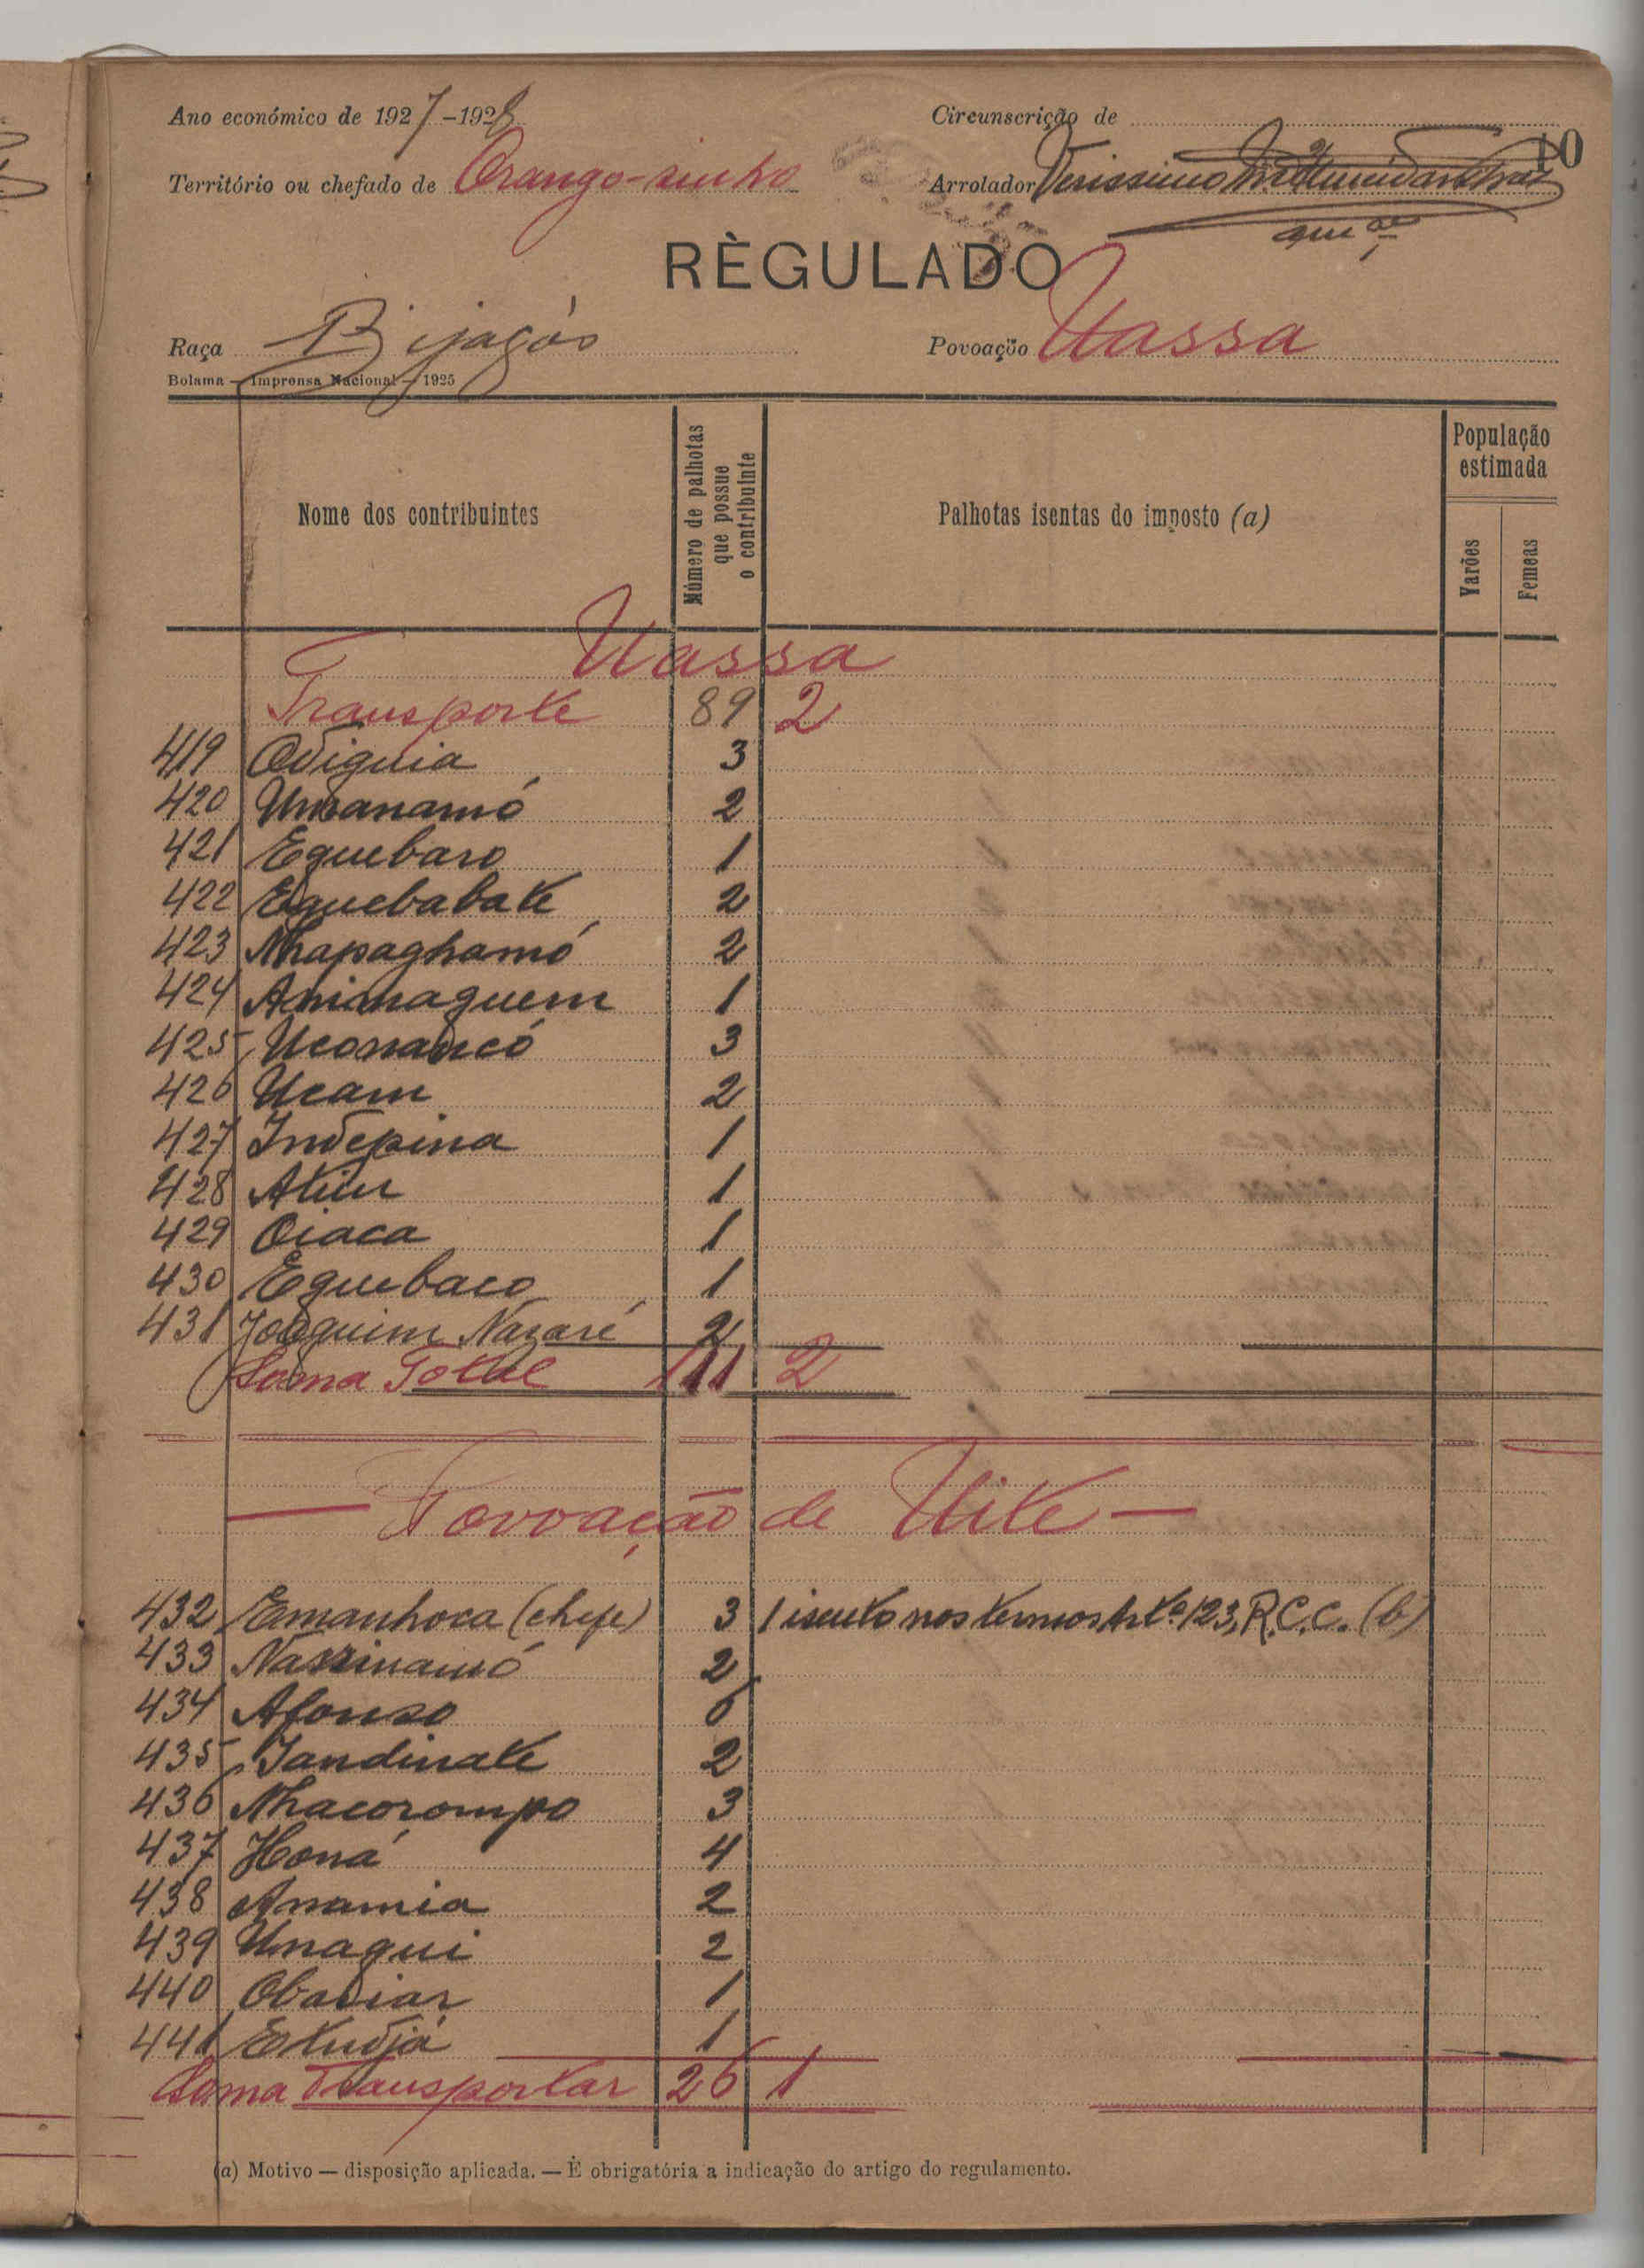 Ano económico de 1927-1928
Circunscrição de
10
Território ou chefado de Orango-sinho
Arrolador Verissimo
RÈGULADO
Raça Bijagós
Povoação Uassa
Bolama — Imprensa Nacional — 1925
Nome dos contribuintes
Número de palhotas que possue o contribuinte
Palhotas isentas do imposto (a)
População estimada
Varões
Femeas
Uassa
Transporte 89 2
419 Odiguia 3
420 Umanamó 2
421 Equebaro 1
422 Equebabate 2
423 Nhapaghamó 2
424 Animaguem 1
425 Uconaucó 3
426 Ucam 2
427 Indepina 1
428 Atiur 1
429 Oiaca 1
430 Equebaco 1
431 Joaquim Nazaré 2
Soma Total 111 2
— Povoação de Uite —
432 Emanhoca (chefe) 3 1 isento nos termos Artº 123, R.C.C. (b)
433 Nazinamó 2
434 Afonso 6
435 Jandinate 2
436 Nhacorompo 3
437 Honá 4
438 Anamia 2
439 Unagui 2
440 Obadiar 1
441 Etudjá 1
Soma Transportar 26 1
(a) Motivo — disposição aplicada. — É obrigatória a indicação do artigo do regulamento.